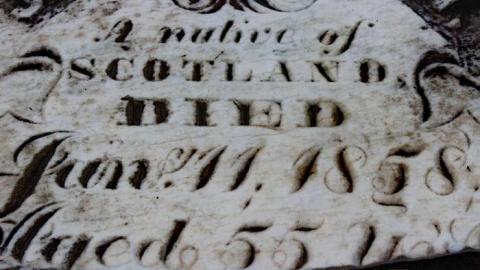 A native of
SCOTLAND,
DIED
Jan. 11, 1858,
Aged 55 y